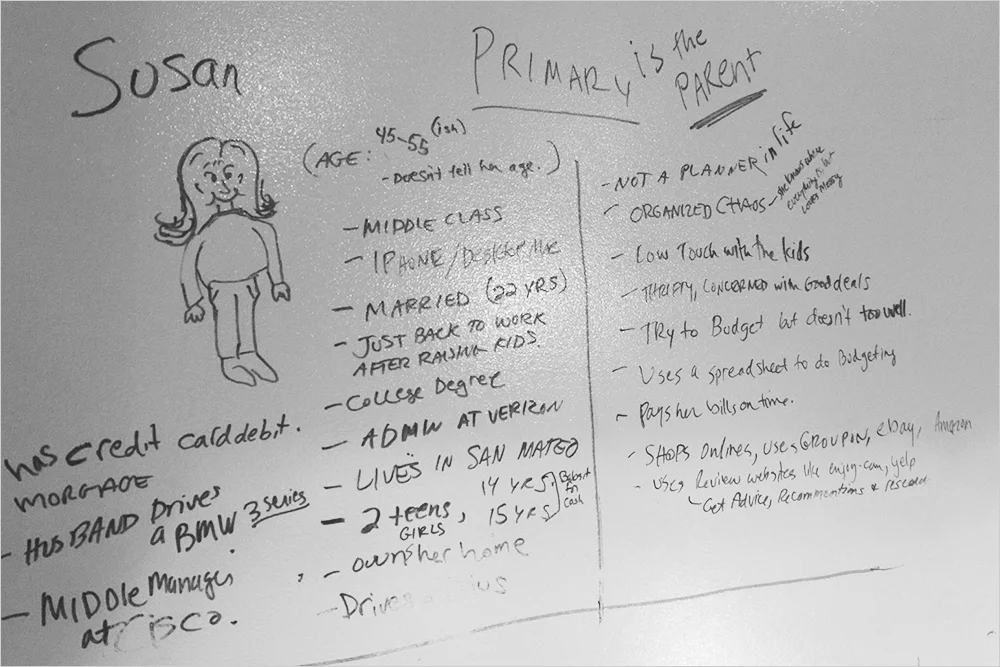 Susan
PRIMARY is the
PARENT
(AGE: 45-55 (ish)
- Doesn't tell her age.)
- MIDDLE CLASS
- IPHONE/Desktop Mac
- MARRIED (22 YRS)
- JUST BACK TO WORK
AFTER RAISING KIDS
- College Degree
- ADMIN AT VERIZON
- LIVES IN SAN MATEO
- 2 teens, 14 YRS.
GIRLS 15 YRS
cash
- owns her home
- Drives
has credit card debit.
MORGAGE
- HUSBAND Drives
a BMW 3 series
- MIDDLE Manager
at CISCO.
- NOT A PLANNER in life
- ORGANIZED CHAOS - she knows where
everything is but
looks messy
- Low Touch with the kids
- THRIFTY, CONCERNED with Good deals
- TRy to Budget but doesn't too well.
- Uses a spreadsheet to do Budgeting
- Pays her bills on time.
- SHOPS Onlines, uses GROUPON, ebay, Amazon
- uses Review websites like yelp
- Get Advice, &